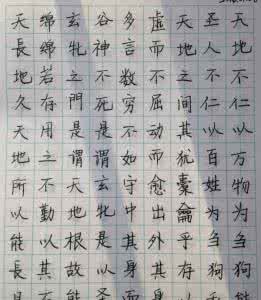 天地不仁以万物为刍狗
圣人不仁以百姓为刍狗
天地之间其犹橐龠乎存
虛而不屈动而愈出外其身
多言數穷不如守中其身而
谷神不死是謂玄牝是以圣
玄牝之門是謂天地根故能
綿綿若存用之不勤以其不
天長地久天地所以能長且